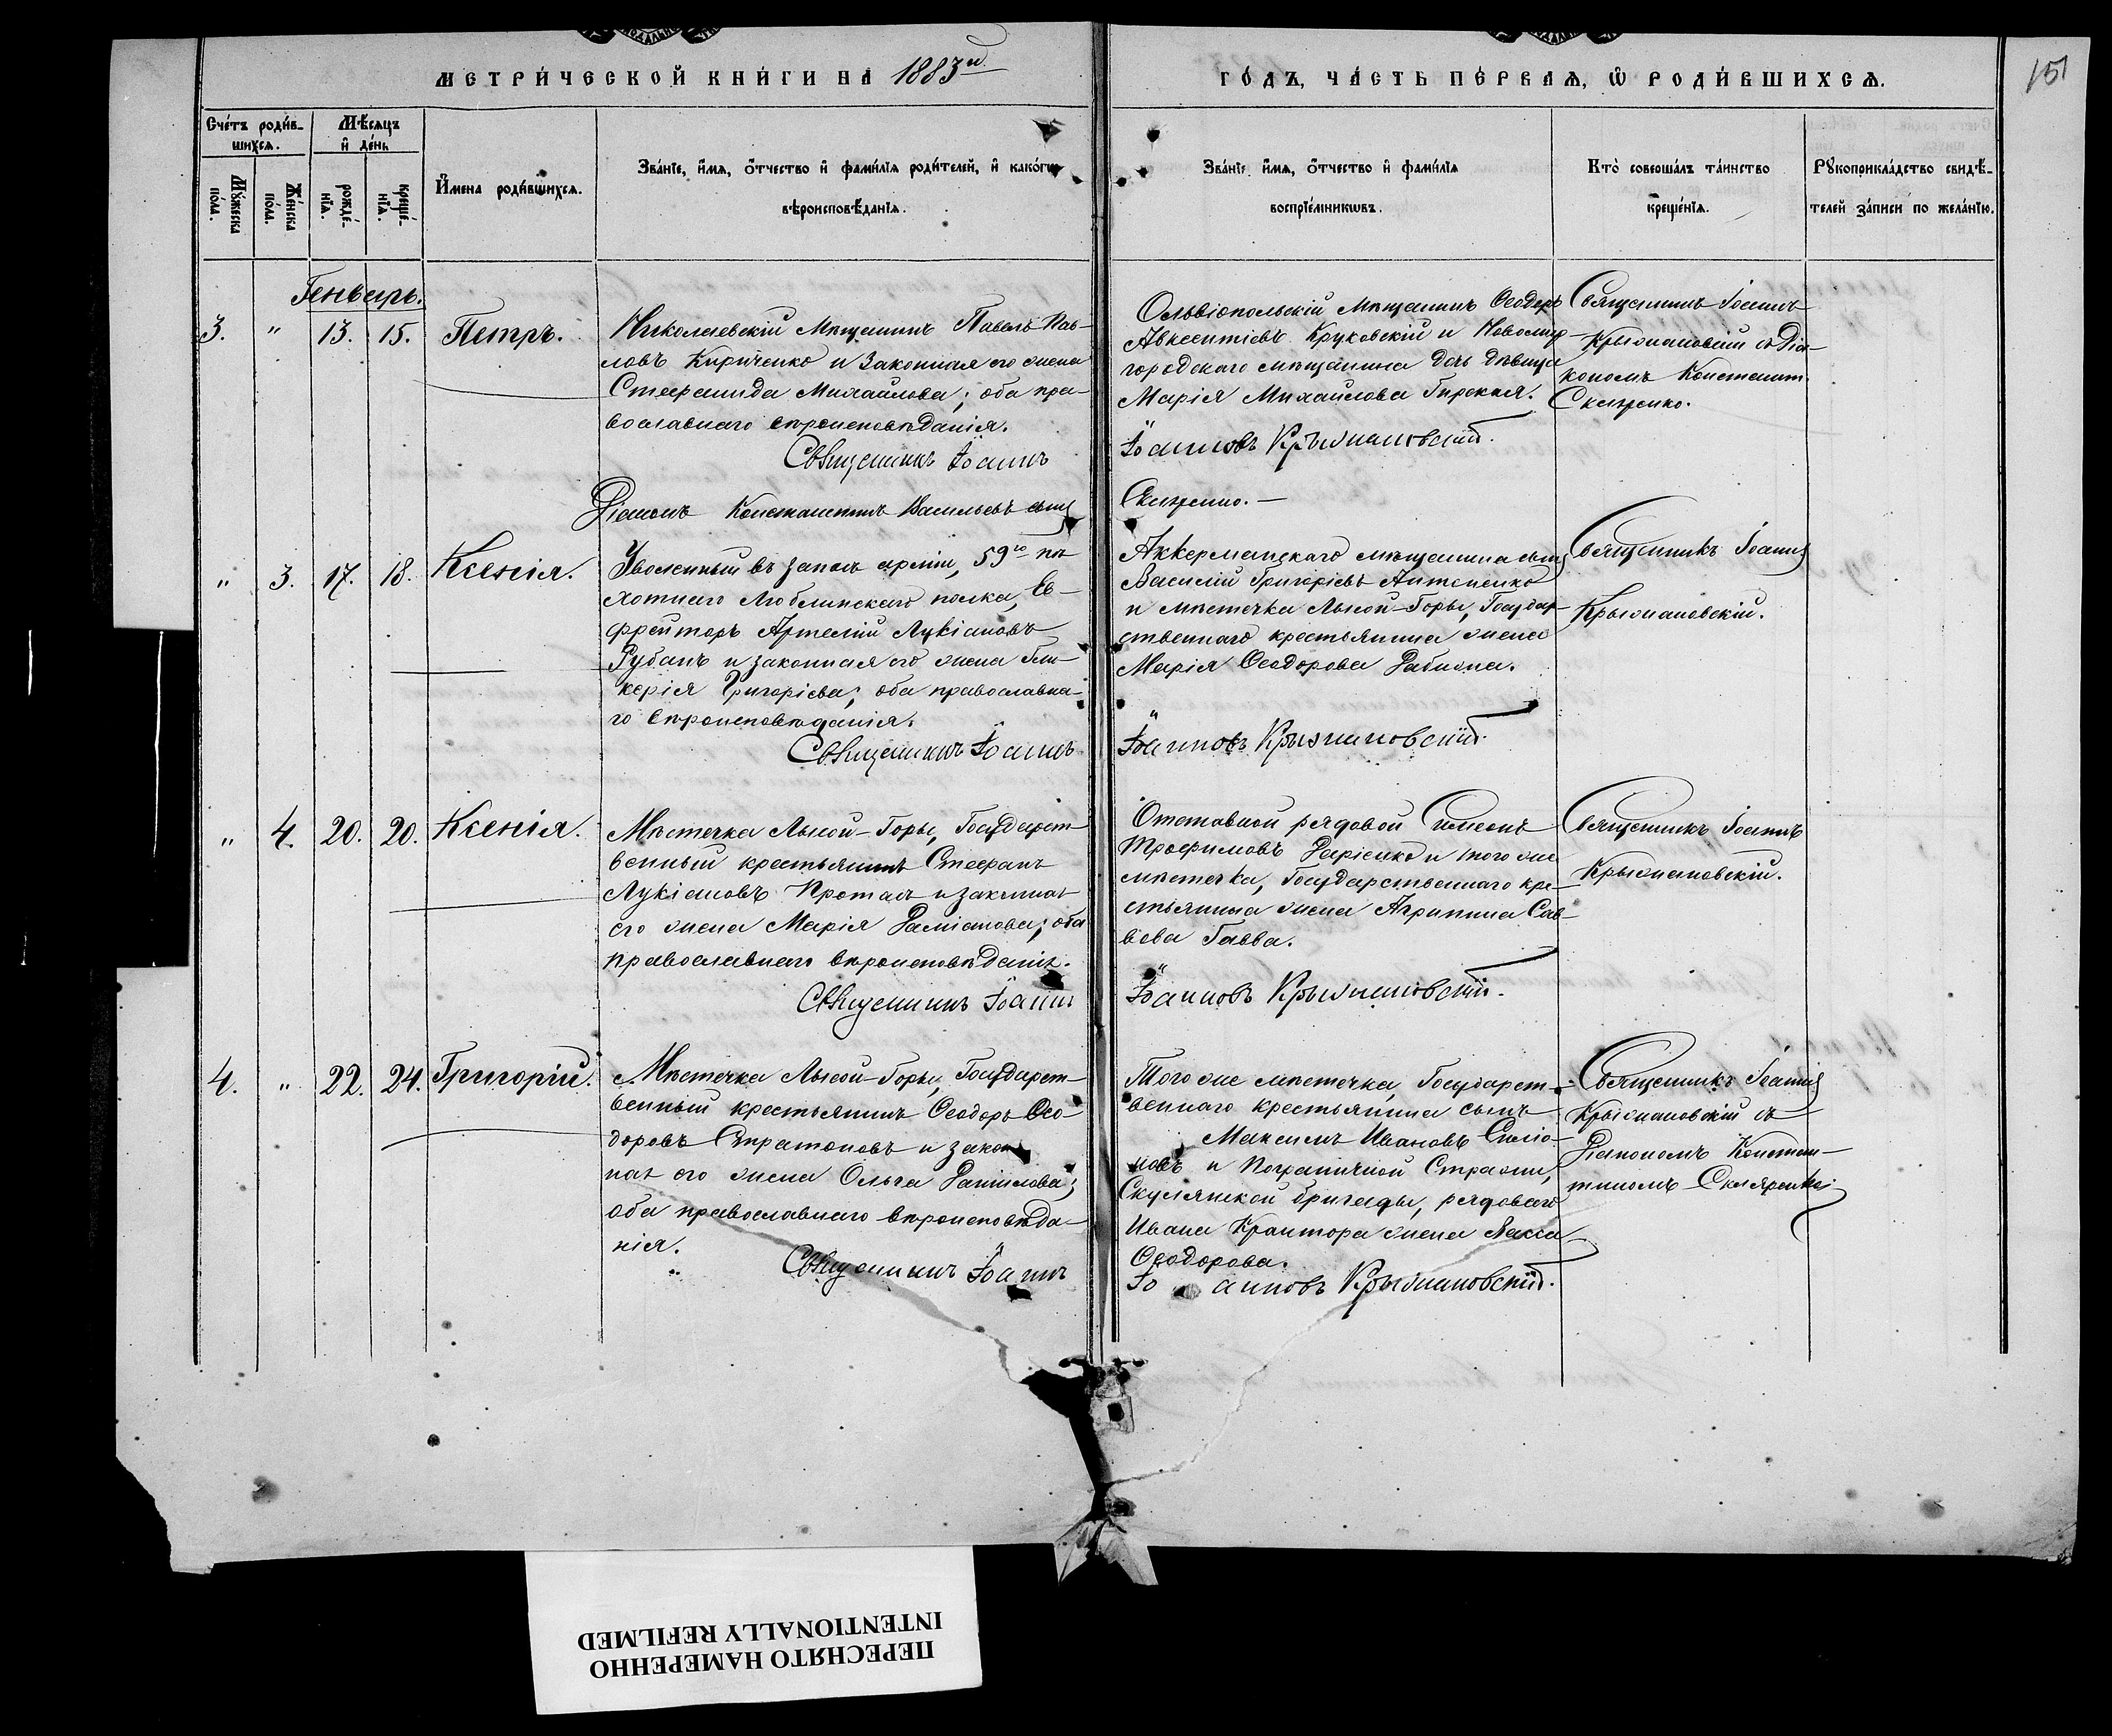 МЕТРИ́ЧЕСКОЙ КНИ́ГИ НА 1883й
ГО́ДЪ, ЧА́СТЬ ПЕ́РВАЯ, Ѡ РОДИ́ВШИХСЯ.
151
Сче́тъ роди́в-
шихся.
Мѣ́сяцъ
и҆ де́нь
Му́жеска
по́ла.
Же́нска
по́ла.
рожде́-
нїѧ.
креще́-
нїѧ.
И҆мена роди́вшихся.
Зва́нїе, и҆́мя, ѻ҆́тчество и҆ фами́лїя роди́телей, и҆ како́гѡ
вѣроисповѣ́данїя.
Зва́нїе и҆́мя, ѻ҆́тчество и҆ фами́лїя
воспрїе́мникѡвъ.
Кто̀ соверша́лъ та́инство
креще́нїя.
Рꙋкоприкла́дство свидѣ́-
телей за́писи по жела́нїю.
Генварь.
3. " 13. 15. Петръ.
Николаевскій Мѣщанинъ Павелъ Пав-
ловъ Кириченко и Законная его жена
Стефанида Михайлова; оба пра-
вославнаго вѣроисповѣданія.
Священникъ Іоаннъ
Діаконъ Константинъ Васильевъ сынъ
Ольвіопольскій Мѣщанинъ Ѳеодоръ
Авксентіевъ Круковскій и Новомир-
городскаго мѣщанина дочь дѣвица
Марія Михайлова Гирская.
Іоанновъ Крыжановскій.
Скляренко.—
Священникъ Іоаннъ
Крыжановскій съ Діа-
кономъ Констант.
Скляренко.
" 3. 17. 18. Ксенія.
Уволенный въ запасъ арміи, 59го пѣ-
хотнаго Люблинскаго полка, Е-
фрейторъ Артемій Лукіановъ
Рубанъ и законная его жена Гли-
керія Григоріева; оба православна-
го вѣроисповѣданія.
Священникъ Іоаннъ
Аккерманскаго мѣщанина сынъ
Василій Григоріевъ Антоненко
и мѣстечка Лысой-Горы, Государ-
ственнаго крестьянина жена
Марія Ѳеодорова Рабиона.
Іоанновъ Крыжановскій.
Священникъ Іоаннъ
Крыжановскій.
" 4. 20. 20. Ксенія.
Мѣстечка Лысой-Горы, Государст-
венный крестьянинъ Стефанъ
Лукіановъ Проталъ и законная
его жена Марія Даміанова; оба
православнаго вѣроисповѣданія.
Священникъ Іоаннъ
Отставной рядовой Симеонъ
Трофимовъ Даріенко и того же
мѣстечка, Государственнаго кре-
стьянина жена Агрипина Сав-
віева Гавва.
Іоанновъ Крыжановскій.
Священникъ Іоаннъ
Крыжановскій.
4. " 22. 24. Григорій.
Мѣстечка Лысой-Горы, Государст-
венный крестьянинъ Ѳеодоръ Ѳео-
доровъ Стратоновъ и закон
ная его жена Ольга Даніилова;
оба православнаго вѣроисповѣда-
нія.
Священникъ Іоаннъ
Того же мѣстечка, Государст-
веннаго крестьянина сынъ
Максимъ Ивановъ
и Пограничной Стражи,
Скулянской бригады, рядоваго
Ивана Крамтора жена Васса
Ѳеодорова.
Іоанновъ Крыжановскій.
Священникъ Іоаннъ
Крыжановскій съ
Діакономъ Констан-
тиномъ Скляренко
ПЕРЕСНЯТО НАМЕРЕННО
INTENTIONALLY REFILMED